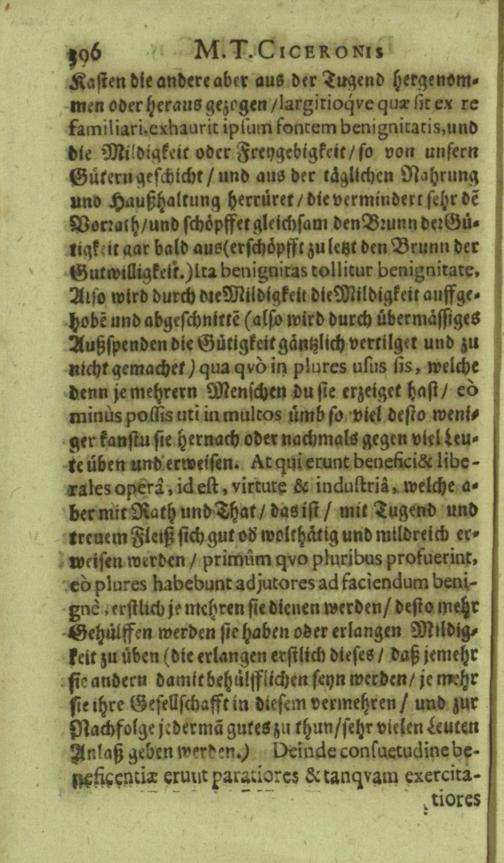 396 M. T. CICERONIS
Kasten die andere aber aus der Tugend hergenom-
men oder heraus gezogen / largitioqve quæ sit ex re
familiari, exhaurit ipsum fontem benignitatis, und
die Mildigkeit oder Freygebigkeit / so von unsern
Gütern geschicht / und aus der täglichen Nahrung
und Haußhaltung herrüret / die vermindert sehr dē
Vorrath / und schöpffet gleichsam den Brunn der Gü-
tigkeit gar bald aus (erschöpfft zu letzt den Brunn der
Gutwilligkeit.) Ita benignitas tollitur benignitate,
Also wird durch die Mildigkeit die Mildigkeit auffge-
hobē und abgeschnittē (also wird durch übermässiges
Außspenden die Gütigkeit gäntzlich vertilget und zu
nicht gemachet) qua qvò in plures usus sis, welche
denn je mehrern Menschen du sie erzeiget hast / eò
minùs possis uti in multos ümb so viel desto weni-
ger kanstu sie hernach oder nachmals gegen viel Leu-
te üben und erweisen. At qui erunt benefici & libe-
rales operâ, id est, virtute & industriâ, welche a-
ber mit Rath und That / das ist / mit Tugend und
treuem Fleiß sich gut od̕ wolthätig und mildreich er-
weisen werden / primûm qvo pluribus profuerint,
eò plures habebunt adjutores ad faciendum beni-
gnè, erstlich je mehren sie dienen werden / desto mehr
Gehülffen werden sie haben oder erlangen Mildig-
keit zu üben (die erlangen erstlich dieses / daß jemehr
sie andern damit behülfflichen seyn werden / je mehr
sie ihre Gesellschafft in diesem vermehren / und zur
Nachfolge jedermā gutes zu thun / sehr vielen Leuten
Anlaß geben werden.) Deinde consuetudine be-
neficentiæ erunt paratiores & tanqvam exercita-
tiores